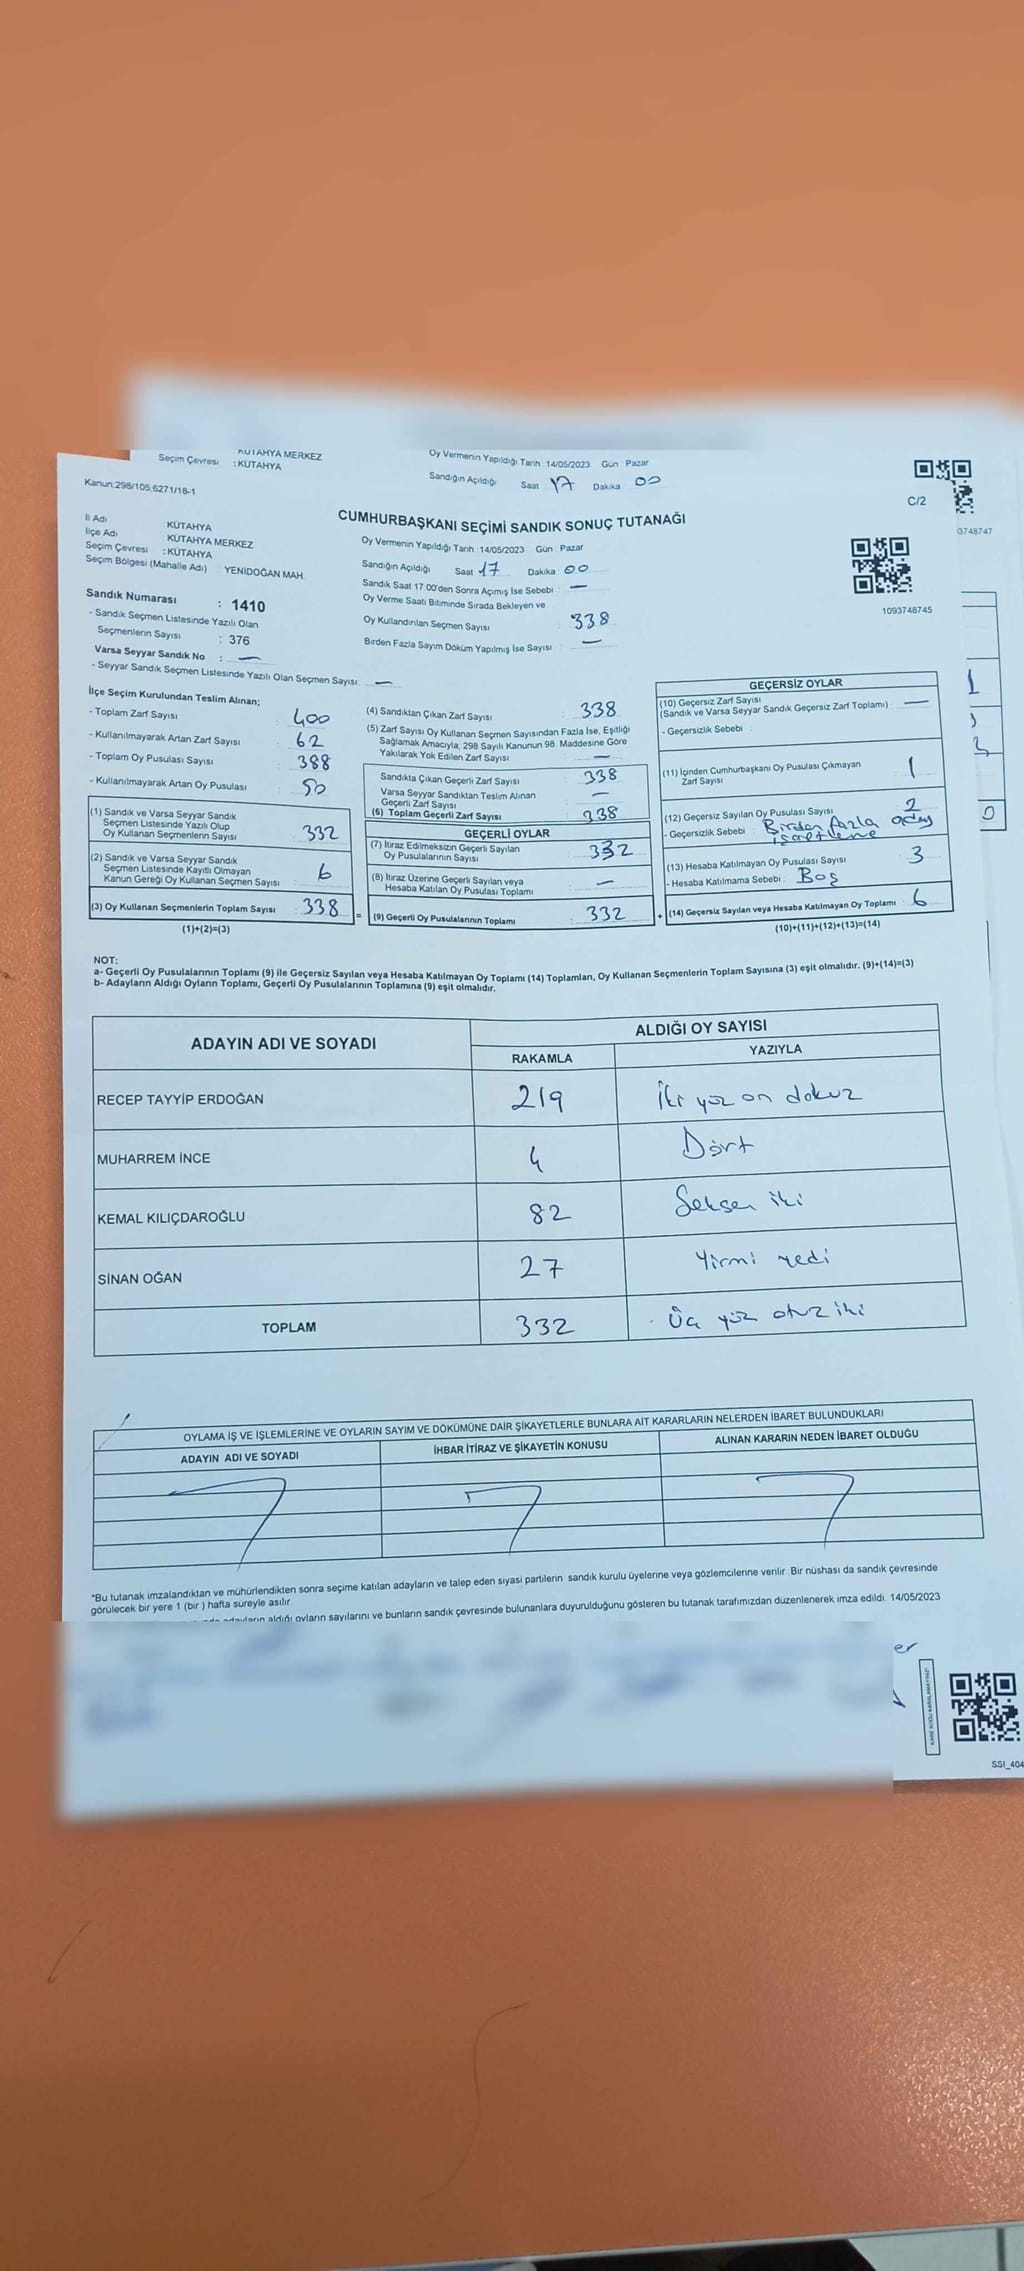 KÜTAHYA MERKEZ
Seçim Çevresi : KÜTAHYA
Oy Vermenin Yapıldığı Tarih 14/05/2023 Gün Pazar
Sandığın Açıldığı Saat 17 Dakika 00
Kanun:298/105,6271/18-1
C/2
3748747
CUMHURBAŞKANI SEÇİMİ SANDIK SONUÇ TUTANAĞI
İl Adı : KÜTAHYA
İlçe Adı : KÜTAHYA MERKEZ
Seçim Çevresi : KÜTAHYA
Seçim Bölgesi (Mahalle Adı) : YENİDOĞAN MAH.
Sandık Numarası : 1410
- Sandık Seçmen Listesinde Yazılı Olan
Seçmenlerin Sayısı : 376
Varsa Seyyar Sandık No : —
- Seyyar Sandık Seçmen Listesinde Yazılı Olan Seçmen Sayısı: —
Oy Vermenin Yapıldığı Tarih : 14/05/2023 Gün : Pazar
Sandığın Açıldığı Saat 17 Dakika 00
Sandık Saat 17:00'den Sonra Açımış İse Sebebi : —
Oy Verme Saati Bitiminde Sırada Bekleyen ve
Oy Kullandırılan Seçmen Sayısı 338
Birden Fazla Sayım Döküm Yapılmış İse Sayısı : —
1093748745
İlçe Seçim Kurulundan Teslim Alınan;
- Toplam Zarf Sayısı : 400
- Kullanılmayarak Artan Zarf Sayısı : 62
- Toplam Oy Pusulası Sayısı : 388
- Kullanılmayarak Artan Oy Pusulası : 50
(1) Sandık ve Varsa Seyyar Sandık
Seçmen Listesinde Yazılı Olup
Oy Kullanan Seçmenlerin Sayısı : 332
(2) Sandık ve Varsa Seyyar Sandık
Seçmen Listesinde Kayıtlı Olmayan
Kanun Gereği Oy Kullanan Seçmen Sayısı : 6
(3) Oy Kullanan Seçmenlerin Toplam Sayısı : 338
(1)+(2)=(3)
(4) Sandıktan Çıkan Zarf Sayısı : 338
(5) Zarf Sayısı Oy Kullanan Seçmen Sayısından Fazla İse, Eşitliği
Sağlamak Amacıyla, 298 Sayılı Kanunun 98. Maddesine Göre
Yakılarak Yok Edilen Zarf Sayısı : —
Sandıkla Çıkan Geçerli Zarf Sayısı : 338
Varsa Seyyar Sandıktan Teslim Alınan
Geçerli Zarf Sayısı : —
(6) Toplam Geçerli Zarf Sayısı : 338
GEÇERLİ OYLAR
(7) İtiraz Edilmeksizin Geçerli Sayılan
Oy Pusulalarının Sayısı : 332
(8) İtiraz Üzerine Geçerli Sayılan veya
Hesaba Katılan Oy Pusulası Toplamı : —
= (9) Geçerli Oy Pusulalarının Toplamı : 332
GEÇERSİZ OYLAR
(10) Geçersiz Zarf Sayısı
(Sandık ve Varsa Seyyar Sandık Geçersiz Zarf Toplamı) : —
- Geçersizlik Sebebi :
(11) İçinden Cumhurbaşkanı Oy Pusulası Çıkmayan
Zarf Sayısı : 1
(12) Geçersiz Sayılan Oy Pusulası Sayısı : 2
- Geçersizlik Sebebi : Birden fazla aday
işaretleme
(13) Hesaba Katılmayan Oy Pusulası Sayısı : 3
- Hesaba Katılmama Sebebi : Boş
+ (14) Geçersiz Sayılan veya Hesaba Katılmayan Oy Toplamı : 6
(10)+(11)+(12)+(13)=(14)
NOT:
a- Geçerli Oy Pusulalarının Toplamı (9) ile Geçersiz Sayılan veya Hesaba Katılmayan Oy Toplamı (14) Toplamları, Oy Kullanan Seçmenlerin Toplam Sayısına (3) eşit olmalıdır. (9)+(14)=(3)
b- Adayların Aldığı Oyların Toplamı, Geçerli Oy Pusulalarının Toplamına (9) eşit olmalıdır.
ADAYIN ADI VE SOYADI
ALDIĞI OY SAYISI
RAKAMLA YAZIYLA
RECEP TAYYİP ERDOĞAN 219 İki yüz on dokuz
MUHARREM İNCE 4 Dört
KEMAL KILIÇDAROĞLU 82 Seksen iki
SİNAN OĞAN 27 Yirmi yedi
TOPLAM 332 Üç yüz otuz iki
OYLAMA İŞ VE İŞLEMLERİNE VE OYLARIN SAYIM VE DÖKÜMÜNE DAİR ŞİKAYETLERLE BUNLARA AİT KARARLARIN NELERDEN İBARET BULUNDUKLARI
ADAYIN ADI VE SOYADI İHBAR İTİRAZ VE ŞİKAYETİN KONUSU ALINAN KARARIN NEDEN İBARET OLDUĞU
*Bu tutanak imzalandıktan ve mühürlendikten sonra seçime katılan adayların ve talep eden siyasi partilerin sandık kurulu üyelerine veya gözlemcilerine verilir. Bir nüshası da sandık çevresinde
görülecek bir yere 1 (bir ) hafta süreyle asılır.
adayların aldığı oyların sayılarını ve bunların sandık çevresinde bulunanlara duyurulduğunu gösteren bu tutanak tarafımızdan düzenlenerek imza edildi. 14/05/2023
SSI_404